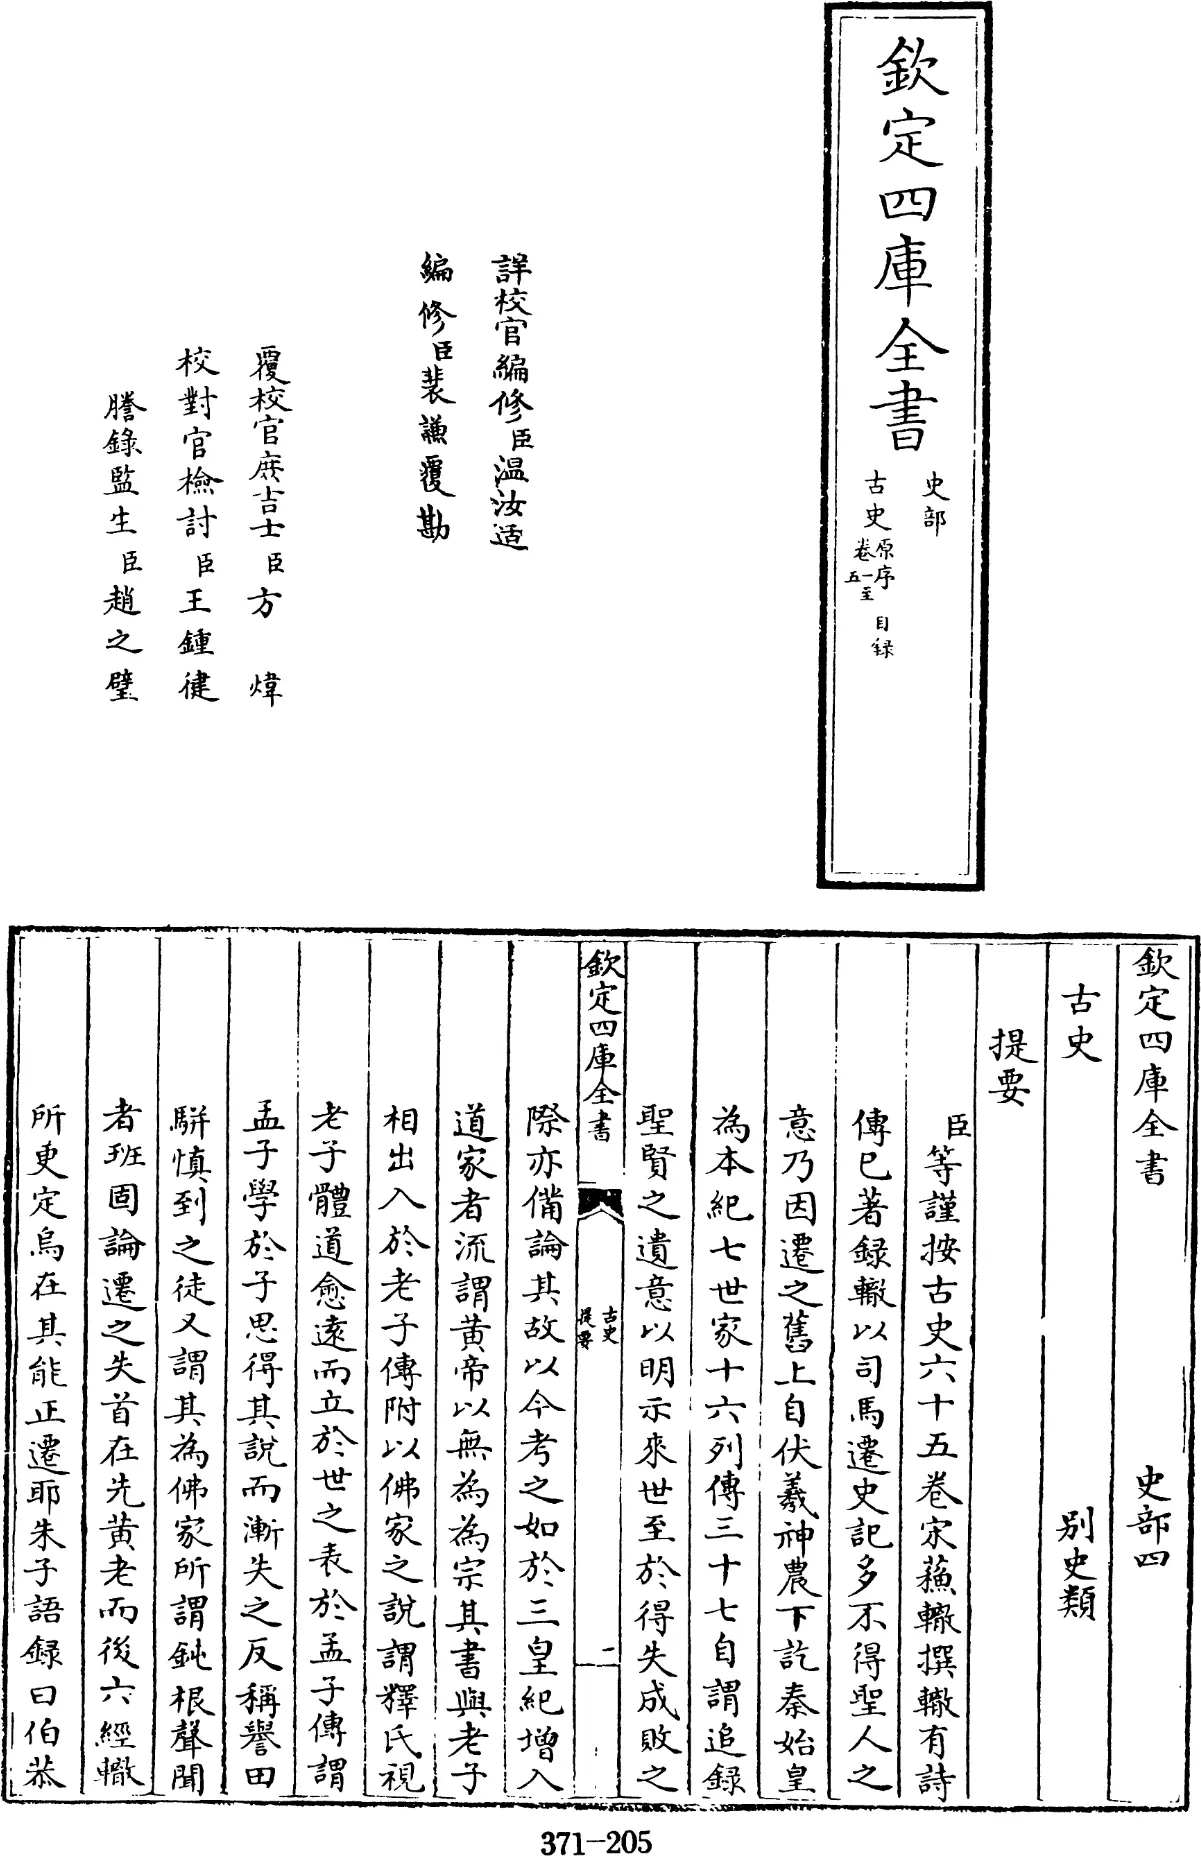 欽定四庫全書
史部
古史原序 目録
卷一至五
詳校官編修臣温汝适
編修臣裴謙覆勘
覆校官庶吉士臣方煒
校對官檢討臣王鍾健
謄錄監生臣趙之璧
欽定四庫全書 史部四
古史 别史類
提要
臣等謹按古史六十五卷宋蘓轍撰轍有詩
傳已著録轍以司馬遷史記多不得聖人之
意乃因遷之舊上自伏羲神農下訖秦始皇
為本紀七世家十六列傳三十七自謂追録
聖賢之遺意以明示來世至於得失成敗之
欽定四庫全書
古史
提要
二
際亦備論其故以今考之如於三皇紀增入
道家者流謂黄帝以無為為宗其書與老子
相出入於老子傳附以佛家之說謂釋氏視
老子體道愈遠而立於世之表於孟子傳謂
孟子學於子思得其說而漸失之反稱譽田
駢慎到之徒又謂其為佛家所謂鈍根聲聞
者班固論遷之失首在先黄老而後六經轍
所更定烏在其能正遷耶朱子語録曰伯恭
371-205